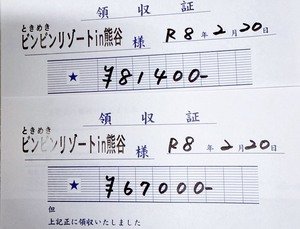 領収証
ときめき
ビンビンリゾートin熊谷 様 R8年2月20日
★ ¥81400-
領収証
ときめき
ビンビンリゾートin熊谷 様 R8年2月20日
★ ¥67000-
但
上記正に領収いたしました